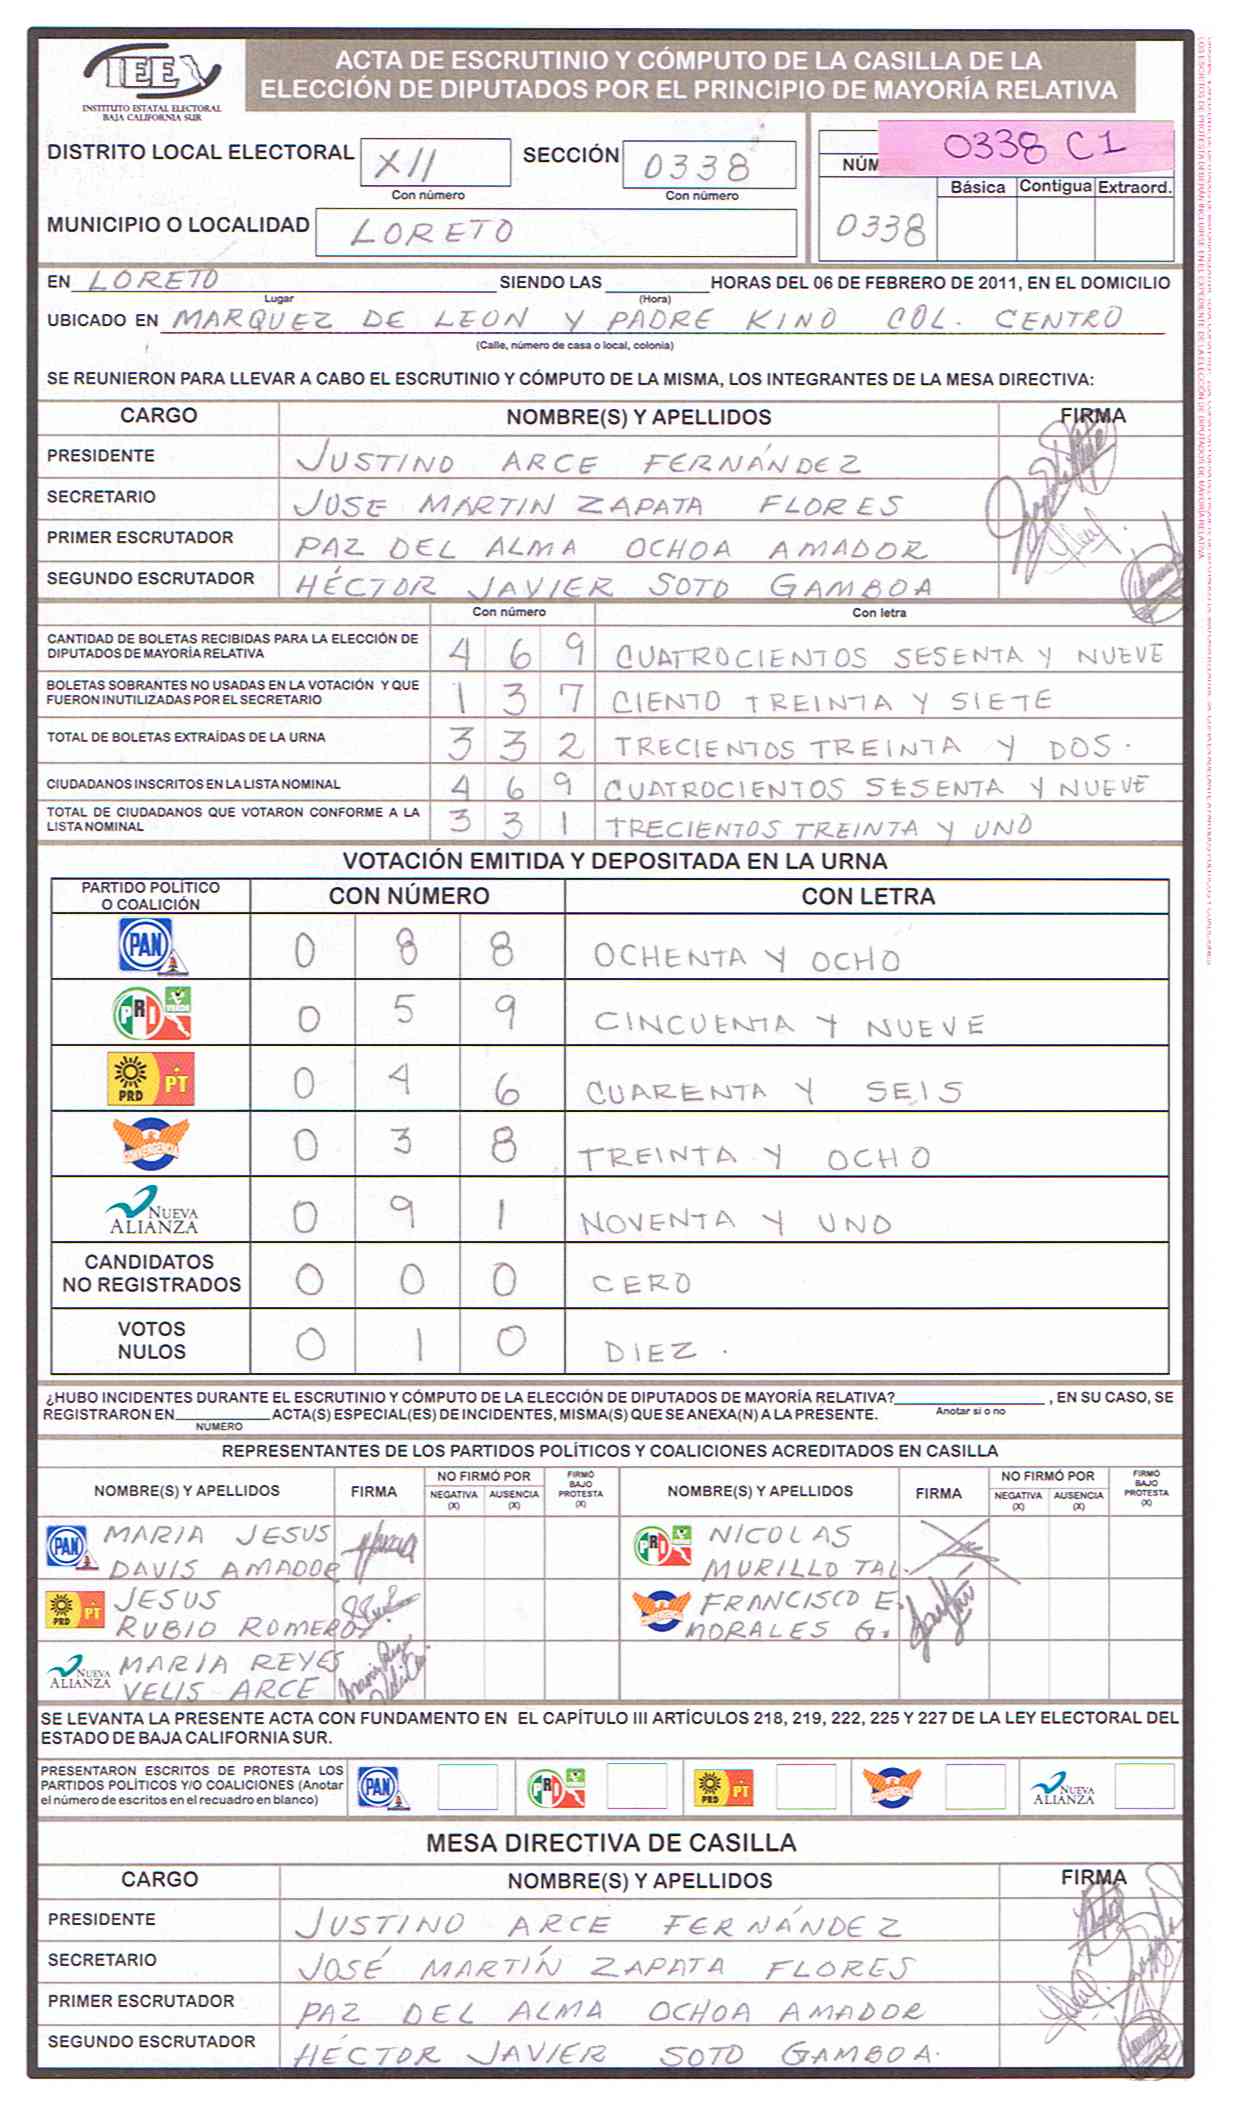 INSTITUTO ESTATAL ELECTORAL
BAJA CALIFORNIA SUR
ACTA DE ESCRUTINIO Y CÓMPUTO DE LA CASILLA DE LA
ELECCIÓN DE DIPUTADOS POR EL PRINCIPIO DE MAYORÍA RELATIVA
DISTRITO LOCAL ELECTORAL XII SECCIÓN 0338
Con número Con número
0338 C1
Básica Contigua Extraord.
0338
MUNICIPIO O LOCALIDAD LORETO
EN LORETO SIENDO LAS HORAS DEL 06 DE FEBRERO DE 2011, EN EL DOMICILIO
Lugar (Hora)
UBICADO EN MARQUEZ DE LEON Y PADRE KINO COL. CENTRO
(Calle, número de casa o local, colonia)
SE REUNIERON PARA LLEVAR A CABO EL ESCRUTINIO Y CÓMPUTO DE LA MISMA, LOS INTEGRANTES DE LA MESA DIRECTIVA:
CARGO NOMBRE(S) Y APELLIDOS FIRMA
PRESIDENTE JUSTINO ARCE FERNÁNDEZ
SECRETARIO JOSE MARTIN ZAPATA FLORES
PRIMER ESCRUTADOR PAZ DEL ALMA OCHOA AMADOR
SEGUNDO ESCRUTADOR HÉCTOR JAVIER SOTO GAMBOA
Con número Con letra
CANTIDAD DE BOLETAS RECIBIDAS PARA LA ELECCIÓN DE
DIPUTADOS DE MAYORÍA RELATIVA 4 6 9 CUATROCIENTOS SESENTA Y NUEVE
BOLETAS SOBRANTES NO USADAS EN LA VOTACIÓN Y QUE
FUERON INUTILIZADAS POR EL SECRETARIO 1 3 7 CIENTO TREINTA Y SIETE
TOTAL DE BOLETAS EXTRAÍDAS DE LA URNA 3 3 2 TRECIENTOS TREINTA Y DOS.
CIUDADANOS INSCRITOS EN LA LISTA NOMINAL 4 6 9 CUATROCIENTOS SESENTA Y NUEVE
TOTAL DE CIUDADANOS QUE VOTARON CONFORME A LA
LISTA NOMINAL 3 3 1 TRECIENTOS TREINTA Y UNO
VOTACIÓN EMITIDA Y DEPOSITADA EN LA URNA
PARTIDO POLÍTICO
O COALICIÓN CON NÚMERO CON LETRA
PAN 0 8 8 OCHENTA Y OCHO
PRI VERDE 0 5 9 CINCUENTA Y NUEVE
PRD PT 0 4 6 CUARENTA Y SEIS
CONVERGENCIA 0 3 8 TREINTA Y OCHO
NUEVA ALIANZA 0 9 1 NOVENTA Y UNO
CANDIDATOS
NO REGISTRADOS 0 0 0 CERO
VOTOS
NULOS 0 1 0 DIEZ.
¿HUBO INCIDENTES DURANTE EL ESCRUTINIO Y CÓMPUTO DE LA ELECCIÓN DE DIPUTADOS DE MAYORÍA RELATIVA? , EN SU CASO, SE
Anotar si o no
REGISTRARON EN ACTA(S) ESPECIAL(ES) DE INCIDENTES, MISMA(S) QUE SE ANEXA(N) A LA PRESENTE.
NUMERO
REPRESENTANTES DE LOS PARTIDOS POLÍTICOS Y COALICIONES ACREDITADOS EN CASILLA
NOMBRE(S) Y APELLIDOS FIRMA NO FIRMÓ POR NEGATIVA (X) AUSENCIA (X) FIRMÓ BAJO PROTESTA (X) NOMBRE(S) Y APELLIDOS FIRMA NO FIRMÓ POR NEGATIVA (X) AUSENCIA (X) FIRMÓ BAJO PROTESTA (X)
PAN MARIA JESUS PRI NICOLAS
DAVIS AMADOR MURILLO TAL.
PRD PT JESUS CONVERGENCIA FRANCISCO E.
RUBIO ROMERO MORALES G.
NUEVA ALIANZA MARIA REYES
VELIS ARCE
SE LEVANTA LA PRESENTE ACTA CON FUNDAMENTO EN EL CAPÍTULO III ARTÍCULOS 218, 219, 222, 225 Y 227 DE LA LEY ELECTORAL DEL
ESTADO DE BAJA CALIFORNIA SUR.
PRESENTARON ESCRITOS DE PROTESTA LOS
PARTIDOS POLÍTICOS Y/O COALICIONES (Anotar
el número de escritos en el recuadro en blanco)
PAN PRI PRD PT CONVERGENCIA NUEVA ALIANZA
MESA DIRECTIVA DE CASILLA
CARGO NOMBRE(S) Y APELLIDOS FIRMA
PRESIDENTE JUSTINO ARCE FERNÁNDEZ
SECRETARIO JOSÉ MARTÍN ZAPATA FLORES
PRIMER ESCRUTADOR PAZ DEL ALMA OCHOA AMADOR
SEGUNDO ESCRUTADOR HÉCTOR JAVIER SOTO GAMBOA.